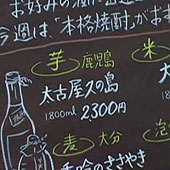 お好みの酒に出逢
今週は「本格焼酎」がお
芋 鹿児島 米
太古屋久の島
1800ml 2300円
麦 大分 泡
香吟のささやき